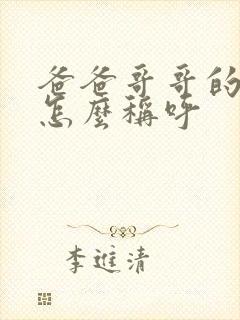 爸爸哥哥的
怎麼稱呼
李進清